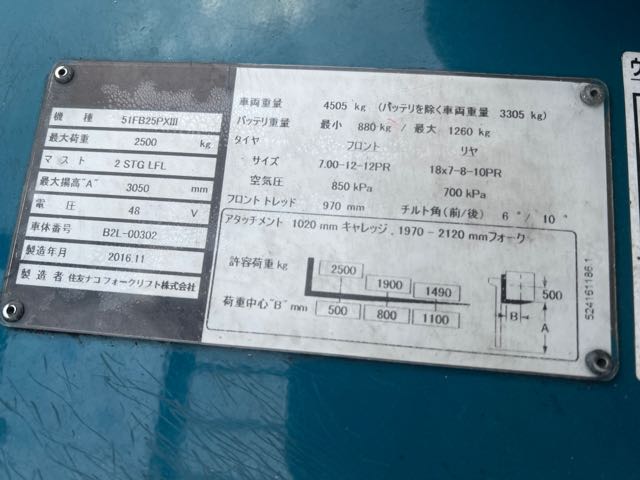 機種 51FB25PXⅢ
最大荷重 2500 kg
マスト 2 STG LFL
最大揚高"A" 3050 mm
電圧 48 V
車体番号 B2L-00302
製造年月 2016.11
製造者 住友ナコフォークリフト株式会社
車両重量 4505 kg (バッテリを除く車両重量 3305 kg)
バッテリ重量 最小 880 kg / 最大 1260 kg
タイヤ フロント リヤ
サイズ 7.00-12-12PR 18x7-8-10PR
空気圧 850 kPa 700 kPa
フロントトレッド 970 mm チルト角(前/後) 6°/10°
アタッチメント 1020 mm キャレッジ、1970-2120 mmフォーク
許容荷重 kg 2500 1900 1490
荷重中心"B" mm 500 800 1100
500
B
A
524161186.1
ウ